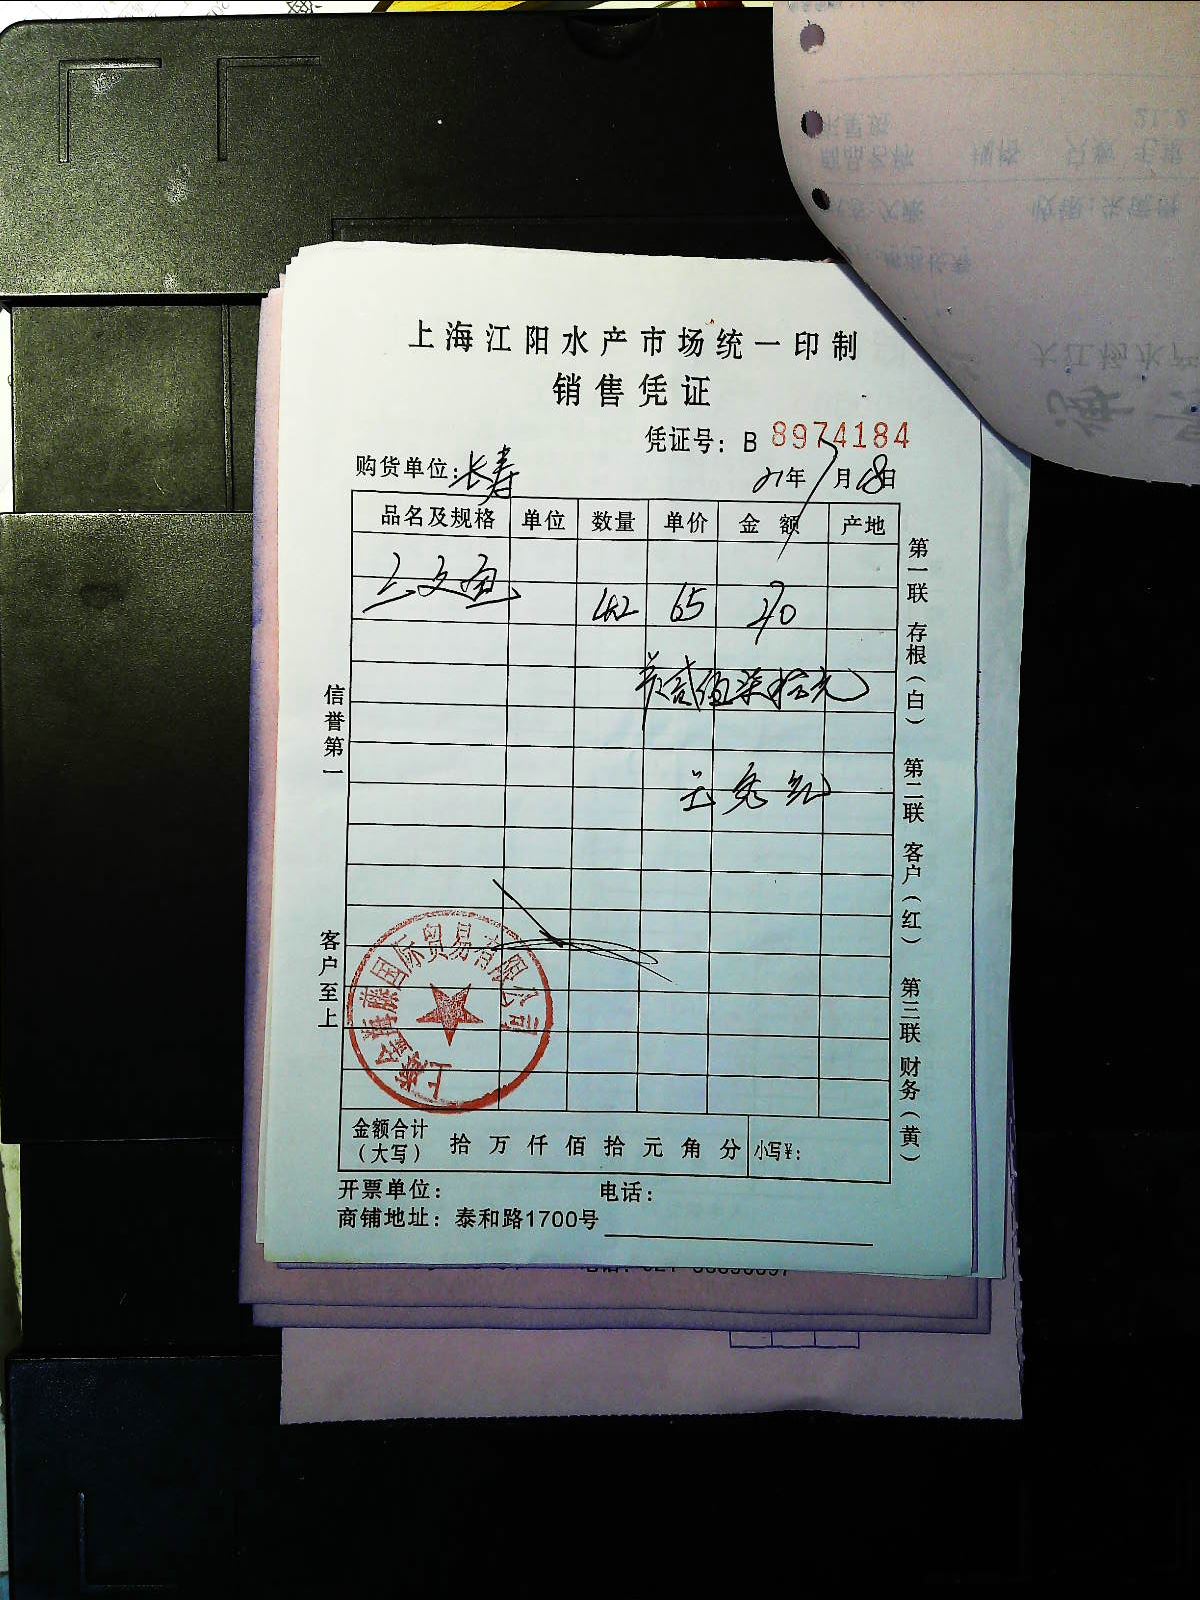 上海江阳水产市场统一印制
销售凭证
凭证号：B 8974184
购货单位：长寿
21年7月18日
品名及规格 单位 数量 单价 金额 产地
三文鱼 65 270
共贰佰柒拾元
信誉第一
客户至上
第一联 存根（白） 第二联 客户（红） 第三联 财务（黄）
国际贸易有限公司
金额合计（大写） 拾万仟佰拾元角分 小写¥：
开票单位： 电话：
商铺地址：泰和路1700号